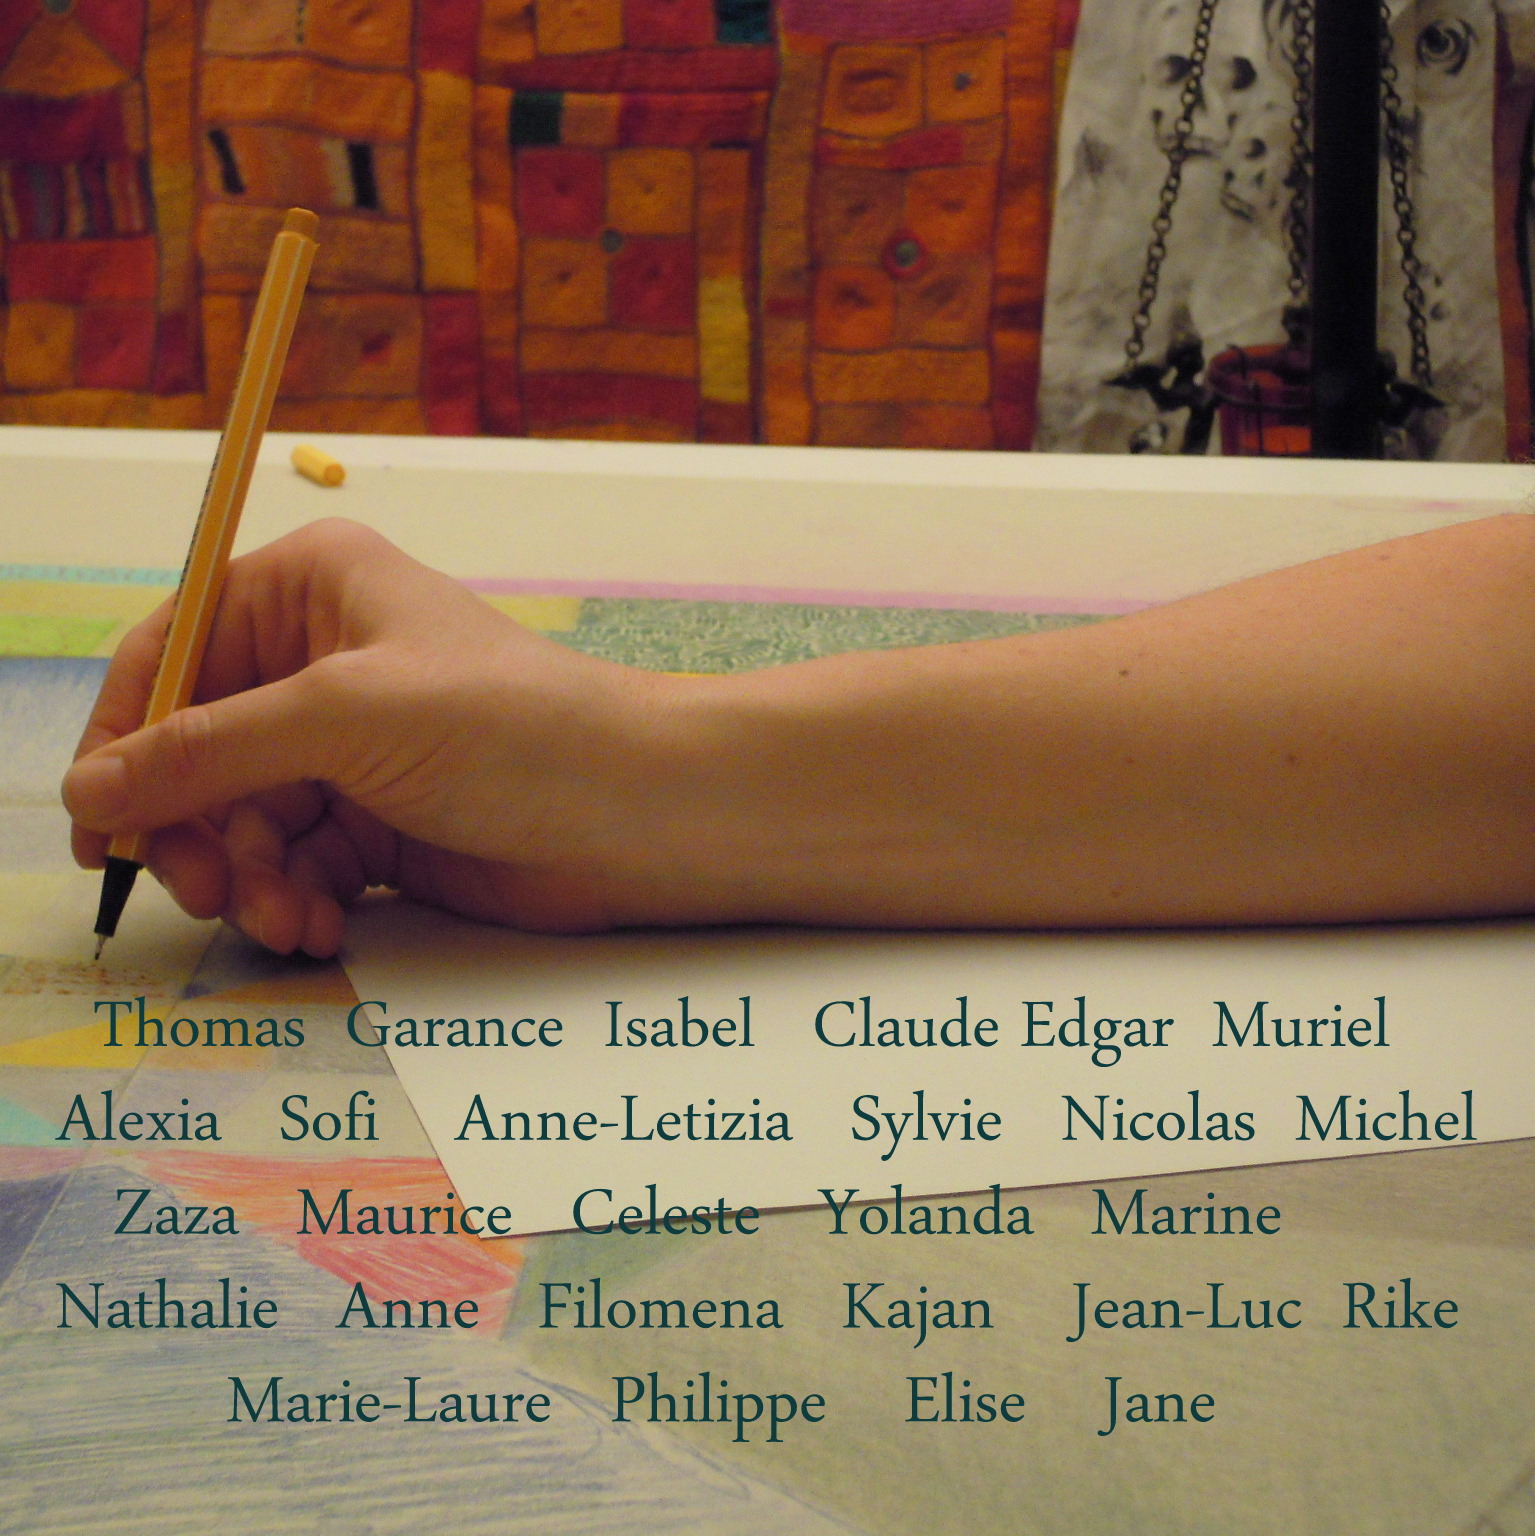 Thomas Garance Isabel Claude Edgar Muriel
Alexia Sofi Anne-Letizia Sylvie Nicolas Michel
Zaza Maurice Celeste Yolanda Marine
Nathalie Anne Filomena Kajan Jean-Luc Rike
Marie-Laure Philippe Elise Jane